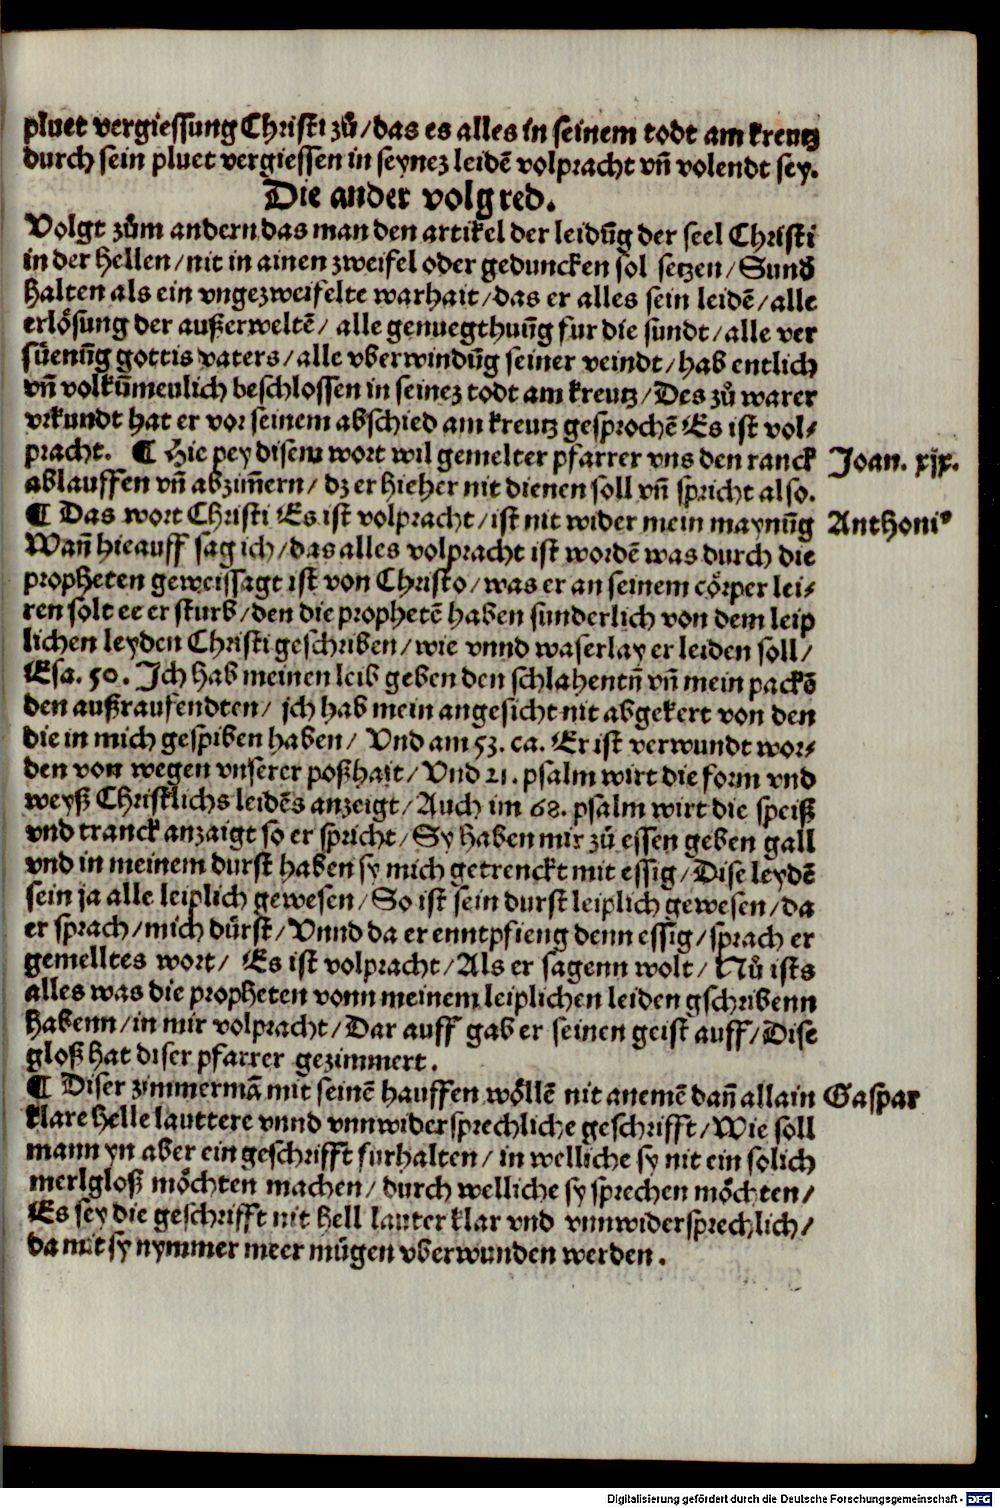 pluet vergiessung Christi zů/das es alles in seinem todt am kreutz
durch sein pluet vergiessen in seynez leidē volpracht vñ volendt sey.
Die ander volg red.
Volgt zům andern das man den artikel der leidūg der seel Christi
in der hellen/nit in ainen zweifel oder geduncken sol setzen/Sund
halten als ein vngezweifelte warhait/das er alles sein leidē/alle
erlösung der außerweltē/ alle genuegthuūg fur die sundt/alle ver
süenūg gottis vaters/alle vberwindūg seiner veindt/hab entlich
vñ volkūmeulich beschlossen in seinez todt am kreutz/Des zů warer
vrkundt hat er vor seinem abschied am kreutz gesprochē Es ist vol⸗
pracht. ¶ Hie pey disem wort wil gemelter pfarrer vns den ranck Joan. xjx.
ablauffen vñ abzim̄ern/ dz er hieher nit dienen soll vñ spricht also.
¶ Das wort Christi Es ist volpracht/ist nit wider mein maynūg Anthoniꝰ
Wañ hieauff sag ich/das alles volpracht ist wordē was durch die
propheten geweissagt ist von Christo/was er an seinem cörper lei⸗
ren solt ee er sturb/den die prophetē haben sunderlich von dem leip
lichen leyden Christi geschriben/wie vnnd waserlay er leiden soll/
Esa. 50. Ich hab meinen leib geben den schlahentñ vñ mein packō
den außraufendten/ jch hab mein angesicht nit abgekert von den
die in mich gespiben haben/ Vnd am 53. ca. Er ist verwundt wor⸗
den von wegen vnserer poßhait/Vnd 21. psalm wirt die form vnd
weyß Christlichs leidēs anzeigt/Auch im 68. psalm wirt die speiß
vnd tranck anzaigt so er spricht/Sy haben mir zů essen geben gall
vnd in meinem durst haben sy mich getrenckt mit essig/Dise leydē
sein ja alle leiplich gewesen/So ist sein durst leiplich gewesen/da
er sprach/mich dürst/Vnnd da er enntpfieng denn essig/sprach er
gemelltes wort/ Es ist volpracht/Als er sagenn wolt/Nů ists
alles was die propheten vonn meinem leiplichen leiden gschribenn
habenn/in mir volpracht/Dar auff gab er seinen geist auff/Dise
gloß hat diser pfarrer gezimmert.
¶ Diser zimmermā mit seinē hauffen wöllē nit anemē dañ allain Gaspar
klare helle lauttere vnnd vnnwidersprechliche geschrifft/Wie soll
mann yn aber ein geschrifft furhalten/ in welliche sy nit ein solich
merlgloß möchten machen/durch welliche sy sprechen möchten/
Es sey die geschrifft nit hell lauter klar vnd vnnwidersprechlich/
damit sy nymmer meer mügen vberwunden werden.
Digitalisierung gefördert durch die Deutsche Forschungsgemeinschaft - DFG